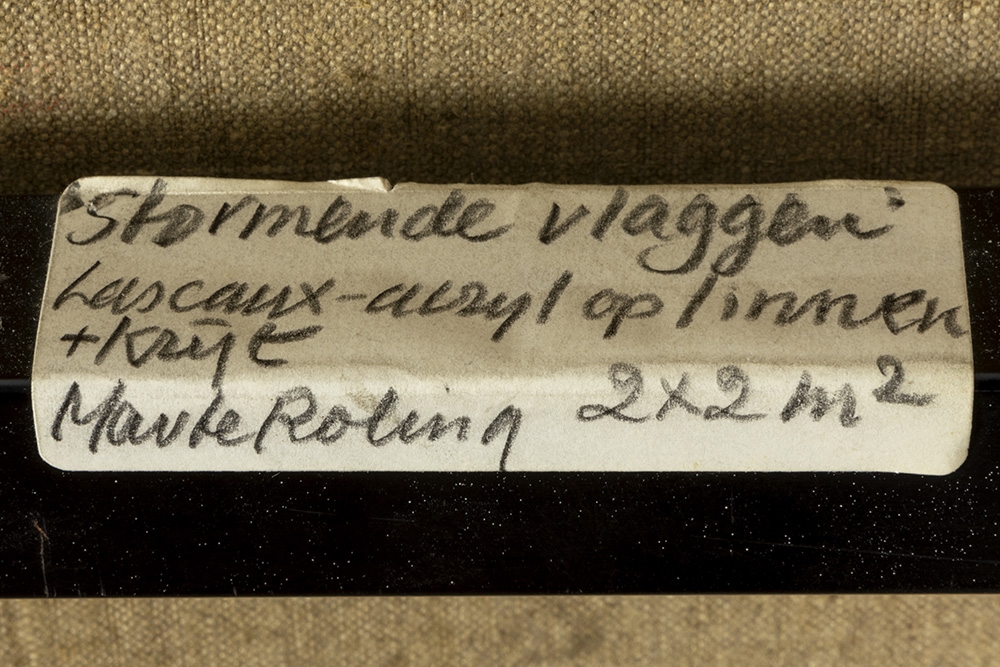 "Stormende vlaggen"
Lascaux-acryl op linnen
+ krijt
Marte Röling 2x2 m²